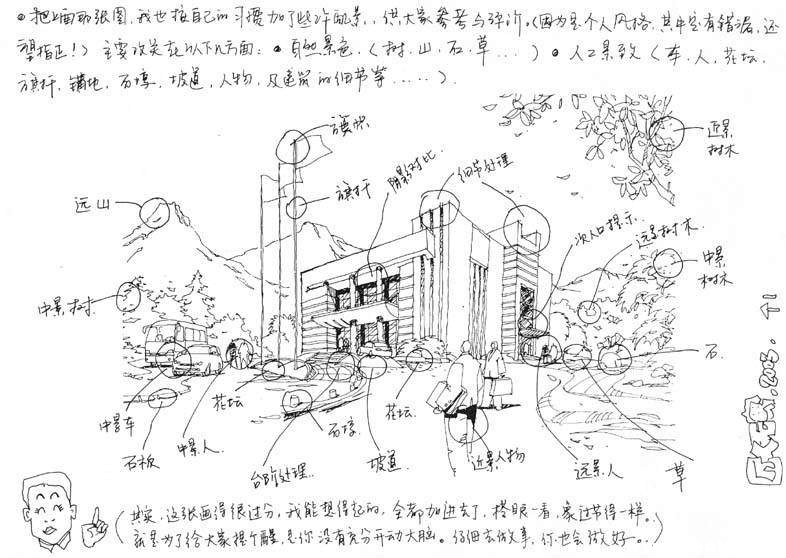 ●把上面那张图,我也按自己的习惯加了些许配景,供大家参考与评价。(因为是个人风格,其中定有错漏,还
望指正!)主要改变在以下几方面:●自然景色。(树.山.石.草...)●人工景致(车.人.花坛.
旗杆.铺地.石墩.坡道.人物.及建筑的细节等.....).
旗帜
近景
树木
阴影对比
细节处理
旗杆
远山
次入口提示
远景树木
中景
树木
中景树
石
花坛
石墩
花坛
中景车
石板
中景人
台阶处理
坡道
近景人物
远景人
草
2003.
(其实,这张画得很过分,我能想得起的,全都加进去了,搭眼一看,象过节得一样。
就是为了给大家提个醒,是你没有充分开动大脑。仔细去做事,你也会做好。)